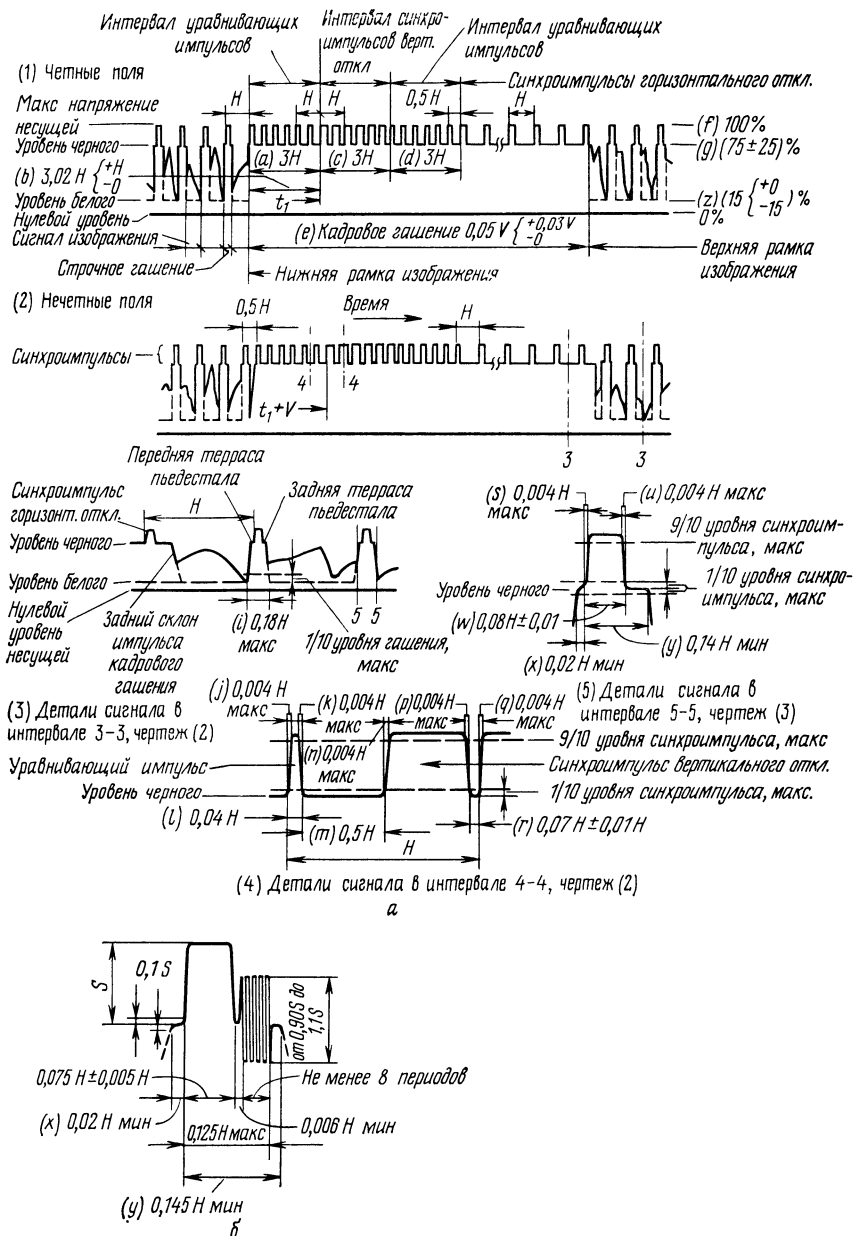 Интервал уравнивающих
импульсов
Интервал синхро-
импульсов верт.
откл
Интервал уравнивающих
импульсов
(1) Четные поля
Синхроимпульсы горизонтального откл.
Макс напряжение
несущей
H
H
H
0,5H
H
(f) 100%
Уровень черного
(g) (75±25)%
(a) 3H
(c) 3H
(d) 3H
(b) 3,02 H {+H −0
Уровень белого
t₁
(z) (15 {+0 −15) %
Нулевой уровень
0%
Сигнал изображения
(e) Кадровое гашение 0,05 V {+0,03 V −0
Верхняя рамка
изображения
Строчное гашение
Нижняя рамка изображения
(2) Нечетные поля
0,5 H
Время
H
Синхроимпульсы
4
4
t₁+V
3
3
Передняя терраса
пьедестала
Синхроимпульс
горизонт. откл.
H
Задняя терраса
пьедестала
Уровень черного
Уровень белого
Нулевой
уровень
несущей
Задний склон
импульса
кадрового
гашения
(i) 0,18H
макс
5
5
1/10 уровня гашения,
макс
(s) 0,004 H
макс
(u) 0,004 H макс
9/10 уровня синхроим-
пульса, макс
Уровень черного
1/10 уровня синхро-
импульса, макс
(w) 0,08H±0,01
(y) 0,14 H мин
(x) 0,02 H мин
(3) Детали сигнала в
интервале 3-3, чертеж (2)
(5) Детали сигнала в
интервале 5-5, чертеж (3)
(j) 0,004 H
макс
(k) 0,004H
макс
(p) 0,004H
макс
(q) 0,004 H
макс
(n) 0,004 H
макс
9/10 уровня синхроимпульса, макс
Уравнивающий импульс
Синхроимпульс вертикального откл.
Уровень черного
1/10 уровня синхроимпульса, макс.
(l) 0,04 H
(m) 0,5 H
(r) 0,07 H±0,01H
H
(4) Детали сигнала в интервале 4-4, чертеж (2)
а
S
0,1 S
от 0,90S до
1,1S
0,075 H±0,005 H
Не менее 8 периодов
(x) 0,02 H мин
0,125H макс
0,006 H мин
(y) 0,145 H мин
б